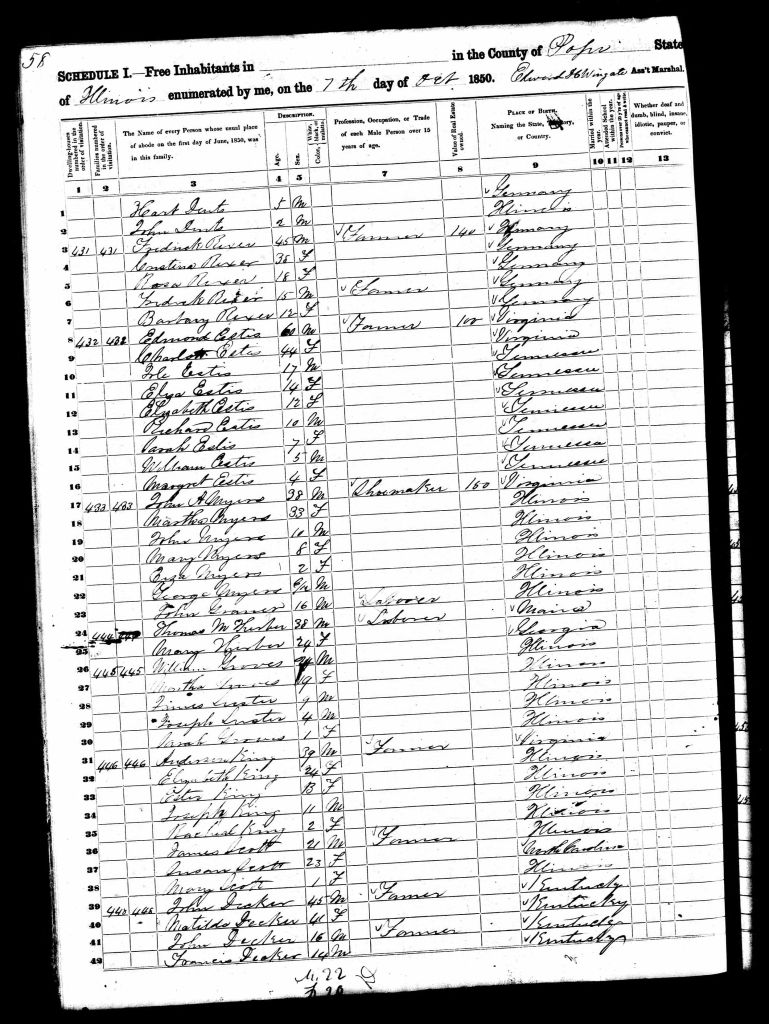 58
SCHEDULE I.—Free Inhabitants in in the County of Pope State
of Illinois enumerated by me, on the 7th day of Oct. 1850. Edward Wingate Ass't Marshal.
Dwelling-houses numbered in the order of visitation.
Families numbered in the order of visitation.
The Name of every Person whose usual place of abode on the first day of June, 1850, was in this family.
DESCRIPTION.
Age.
Sex.
Color, White, black, or mulatto.
Profession, Occupation, or Trade of each Male Person over 15 years of age.
Value of Real Estate owned.
PLACE OF BIRTH.
Naming the State, or Country.
Married within the year.
Attended School within the year.
Whether deaf and dumb, blind, insane, idiotic, pauper, or convict.
1 2 3 4 5 6 7 8 9 10 11 12 13
1 Hart 5 M Germany
2 John 2 M Illinois
3 431 431 Fredrick Rexer 45 M Farmer 140 Germany
4 Cristina Rexer 38 F Germany
5 Rosa Rexer 18 F Germany
6 Fredrick Rexer 15 M Farmer Germany
7 Barbary Rexer 12 F Germany
8 432 432 Edmond Estis 60 M Farmer 100 Virginia
9 Charlott Estis 44 F Virginia
10 Estis 17 M Tennessee
11 Eliza Estis 14 F Tennessee
12 Elizabeth Estis 12 F Tennessee
13 Richard Estis 10 M Tennessee
14 Sarah Estis 7 F Tennessee
15 William Estis 5 M Tennessee
16 Margret Estis 4 F Tennessee
17 433 433 John A Myers 38 M Shoemaker 150 Virginia
18 Martha Myers 33 F Illinois
19 John Myers 10 M Illinois
20 Mary Myers 8 F Illinois
21 Myers 2 F Illinois
22 George Myers M Illinois
23 John 16 M Laborer Illinois
24 444 Thomas M 38 M Laborer
25 Mary 24 F Georgia
26 445 445 William Groves M Illinois
27 Martha Groves 19 F Illinois
28 James Luster 9 M Illinois
29 Joseph Luster 4 M Illinois
30 Sarah Groves 1 F Illinois
31 446 446 Anderson King 39 M Farmer Virginia
32 Elizabeth King 24 F Illinois
33 Ester King 13 F Illinois
34 Joseph King 11 M Illinois
35 Rachel King 2 F Illinois
36 James Scott 21 M Farmer Illinois
37 Susan Scott 23 F North Carolina
38 Mary Scott 1 F Illinois
39 John Decker 45 M Farmer Kentucky
40 Matilda Decker 41 F Kentucky
41 John Decker 16 M Farmer Kentucky
42 Francis Decker 14 M Kentucky
M. 22
F 20